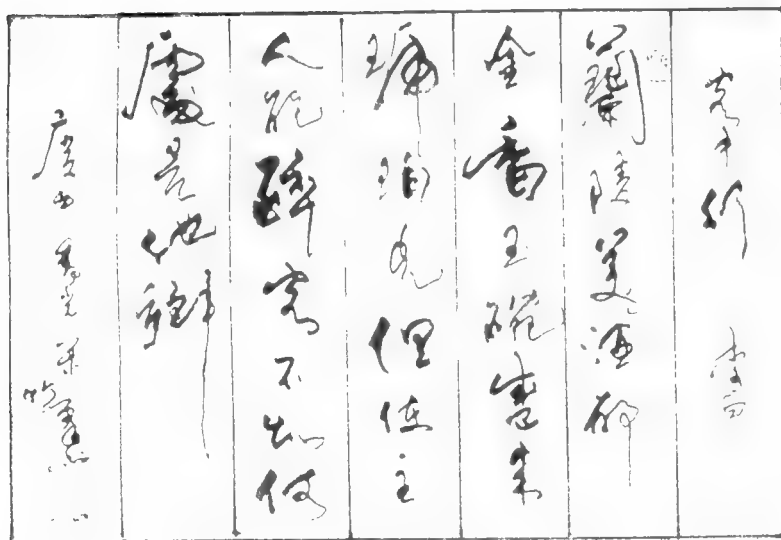 客中行 李白
蘭陵美酒鬱
金香玉碗盛来
琥珀光但使主
人能醉客不知何
處是他鄉